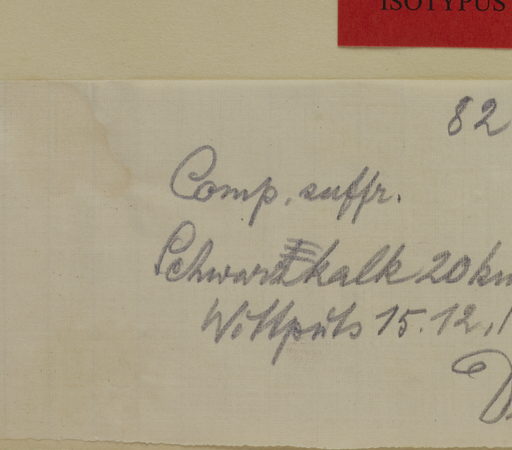 ISOTYPUS
82
Comp. suffr.
Schwarzkalk 20 km
Wittputs 15.12.